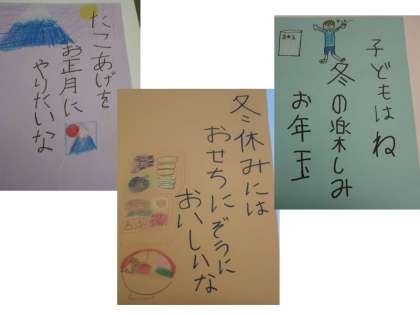 たこあげを
お正月に
やりたいな
冬休みには
おせちにぞうに
おいしいな
子どもはね
冬の楽しみ
お年玉